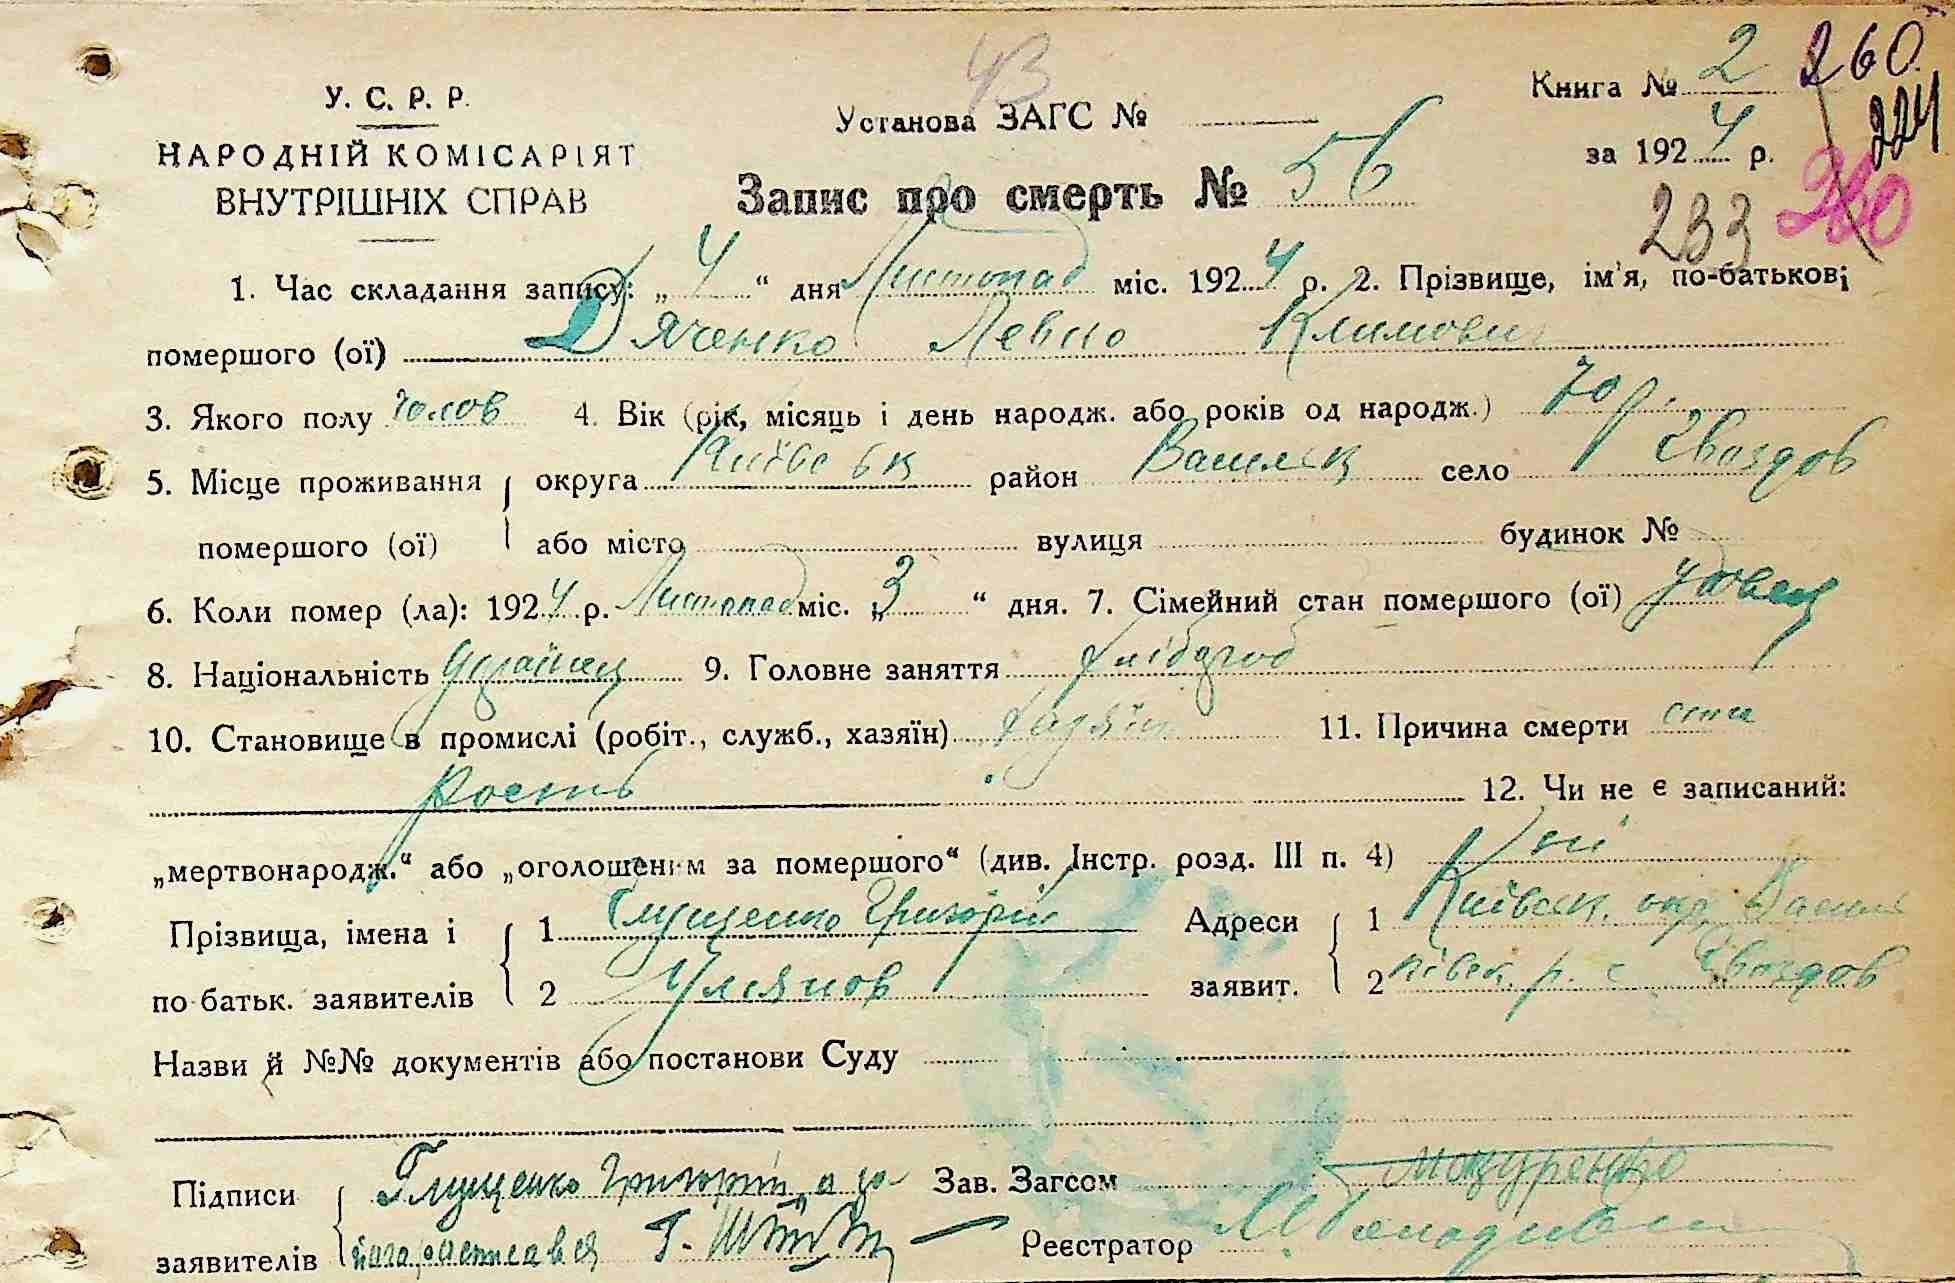 43
Книга № 2 260
224
У. С. Р. Р.
Установа ЗАГС №
НАРОДНІЙ КОМІСАРІЯТ
за 1924 р.
ВНУТРІШНІХ СПРАВ
Запис про смерть № 56
233 260
1. Час складання запису: „4“ дня Листопад міс. 1924 р. 2. Прізвище, ім'я, по-батькові
помершого (ої) Дяченко Левко Климович
3. Якого полу чолов 4. Вік (рік, місяць і день народж. або років од народж.) 70 р.
5. Місце проживання округа Київськ район Васильк село Гвоздов
помершого (ої) або місто вулиця будинок №
6. Коли помер (ла): 1924 р. Листопад міс. „3“ дня. 7. Сімейний стан помершого (ої) удовец
8. Національність Українец 9. Головне заняття хлібороб
10. Становище в промислі (робіт., служб., хазяїн) хазяїн 11. Причина смерти ста
рость 12. Чи не є записаний:
„мертвонародж.“ або „оголошеним за помершого“ (див. Інстр. розд. III п. 4) ні
Прізвища, імена і 1 Глущенко Григорій Адреси 1 Київськ. окр Василь
по батьк. заявителів 2 Улянов заявит. 2 ківск. р. с Гвоздов
Назви й №№ документів або постанови Суду
Підписи Глущенко Григорій, а за Зав. Загсом Мазуренко
заявителів його росписався Г. Реєстратор